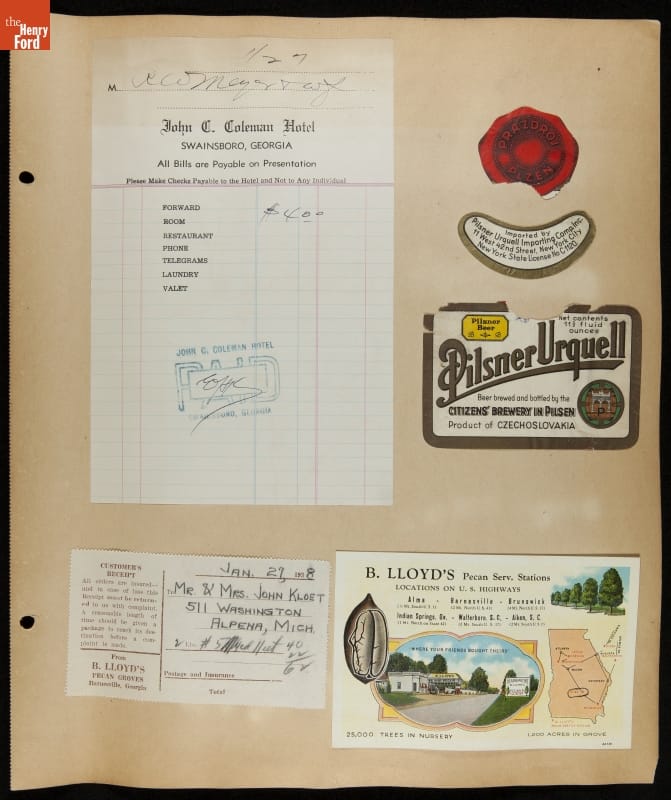 the
Henry
Ford
1/27
M
John C. Coleman Hotel
SWAINSBORO, GEORGIA
All Bills are Payable on Presentation
Please Make Checks Payable to the Hotel and Not to Any Individual
FORWARD
ROOM $4.00
RESTAURANT
PHONE
TELEGRAMS
LAUNDRY
VALET
JOHN C. COLEMAN HOTEL
PAID
SWAINSBORO, GEORGIA
PRAZDROJ
PLZEŇ
Imported by
Pilsner Urquell Importing Comp. Inc.
11 West 42nd Street, New York City
New York State License No. C 1120
Pilsner
Beer
net contents
11½ fluid
ounces
Pilsner Urquell
Beer brewed and bottled by the
CITIZENS' BREWERY IN PILSEN
Product of CZECHOSLOVAKIA
CUSTOMER'S
RECEIPT
All orders are insured—
and in case of loss this
Receipt must be returned
to us with complaint.
A reasonable length of
time should be given a
package to reach its destination
before a complaint
is made.
From
B. LLOYD'S
PECAN GROVES
Barnesville, Georgia
JAN. 27, 1938
To MR & MRS. JOHN KLOET
511 WASHINGTON
ALPENA, MICH.
2 Lbs. # 5 Mixed 40
22
62
Postage and Insurance
Total
B. LLOYD'S Pecan Serv. Stations
LOCATIONS ON U. S. HIGHWAYS
Alma - Barnesville - Brunswick
Indian Springs, Ga. - Walterboro, S. C. - Aiken, S. C.
"WHERE YOUR FRIENDS BOUGHT THEIRS"
25,000 TREES IN NURSERY
1,200 ACRES IN GROVE